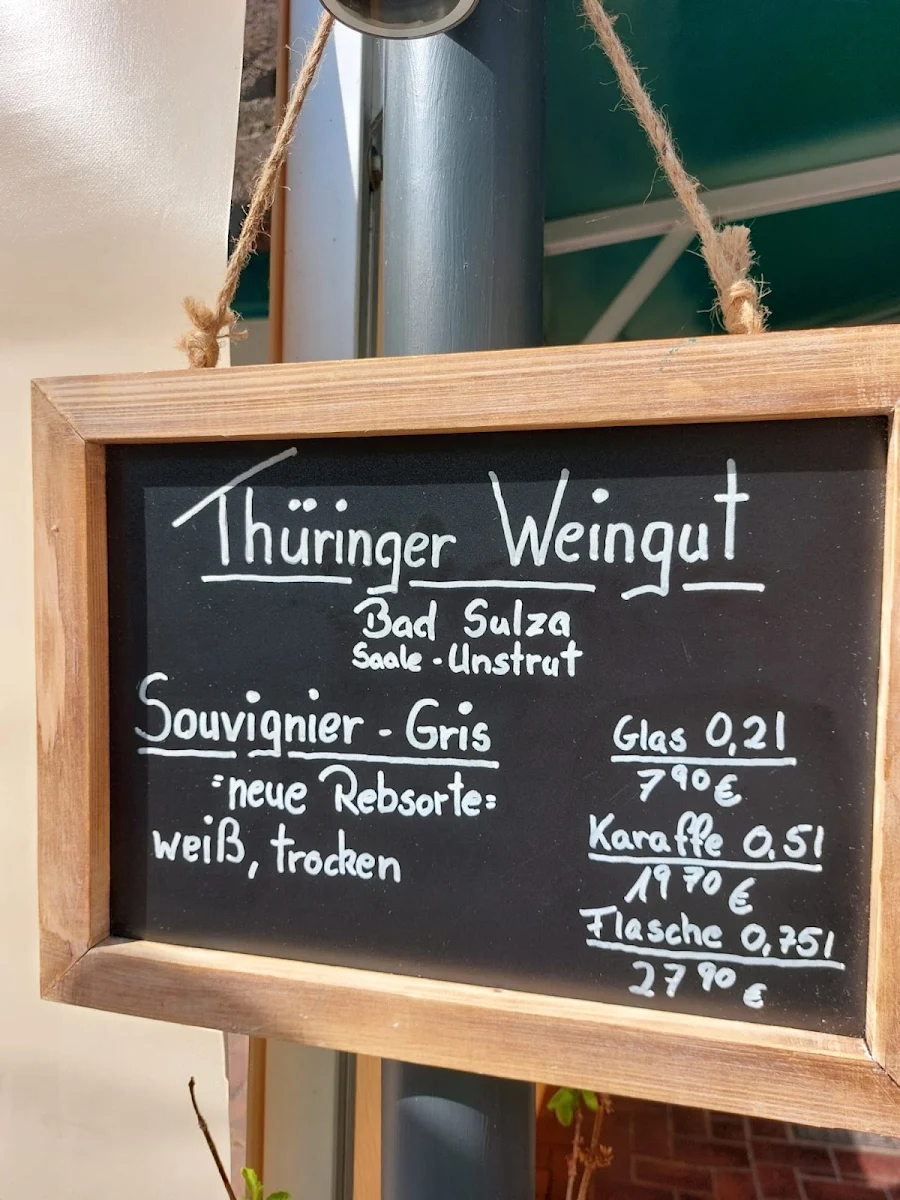 Thüringer Weingut
Bad Sulza
Saale-Unstrut
Souvignier - Gris
:neue Rebsorte:
weiß, trocken
Glas 0,2l
7 90 €
Karaffe 0,5l
19 70 €
Flasche 0,75l
27 90 €